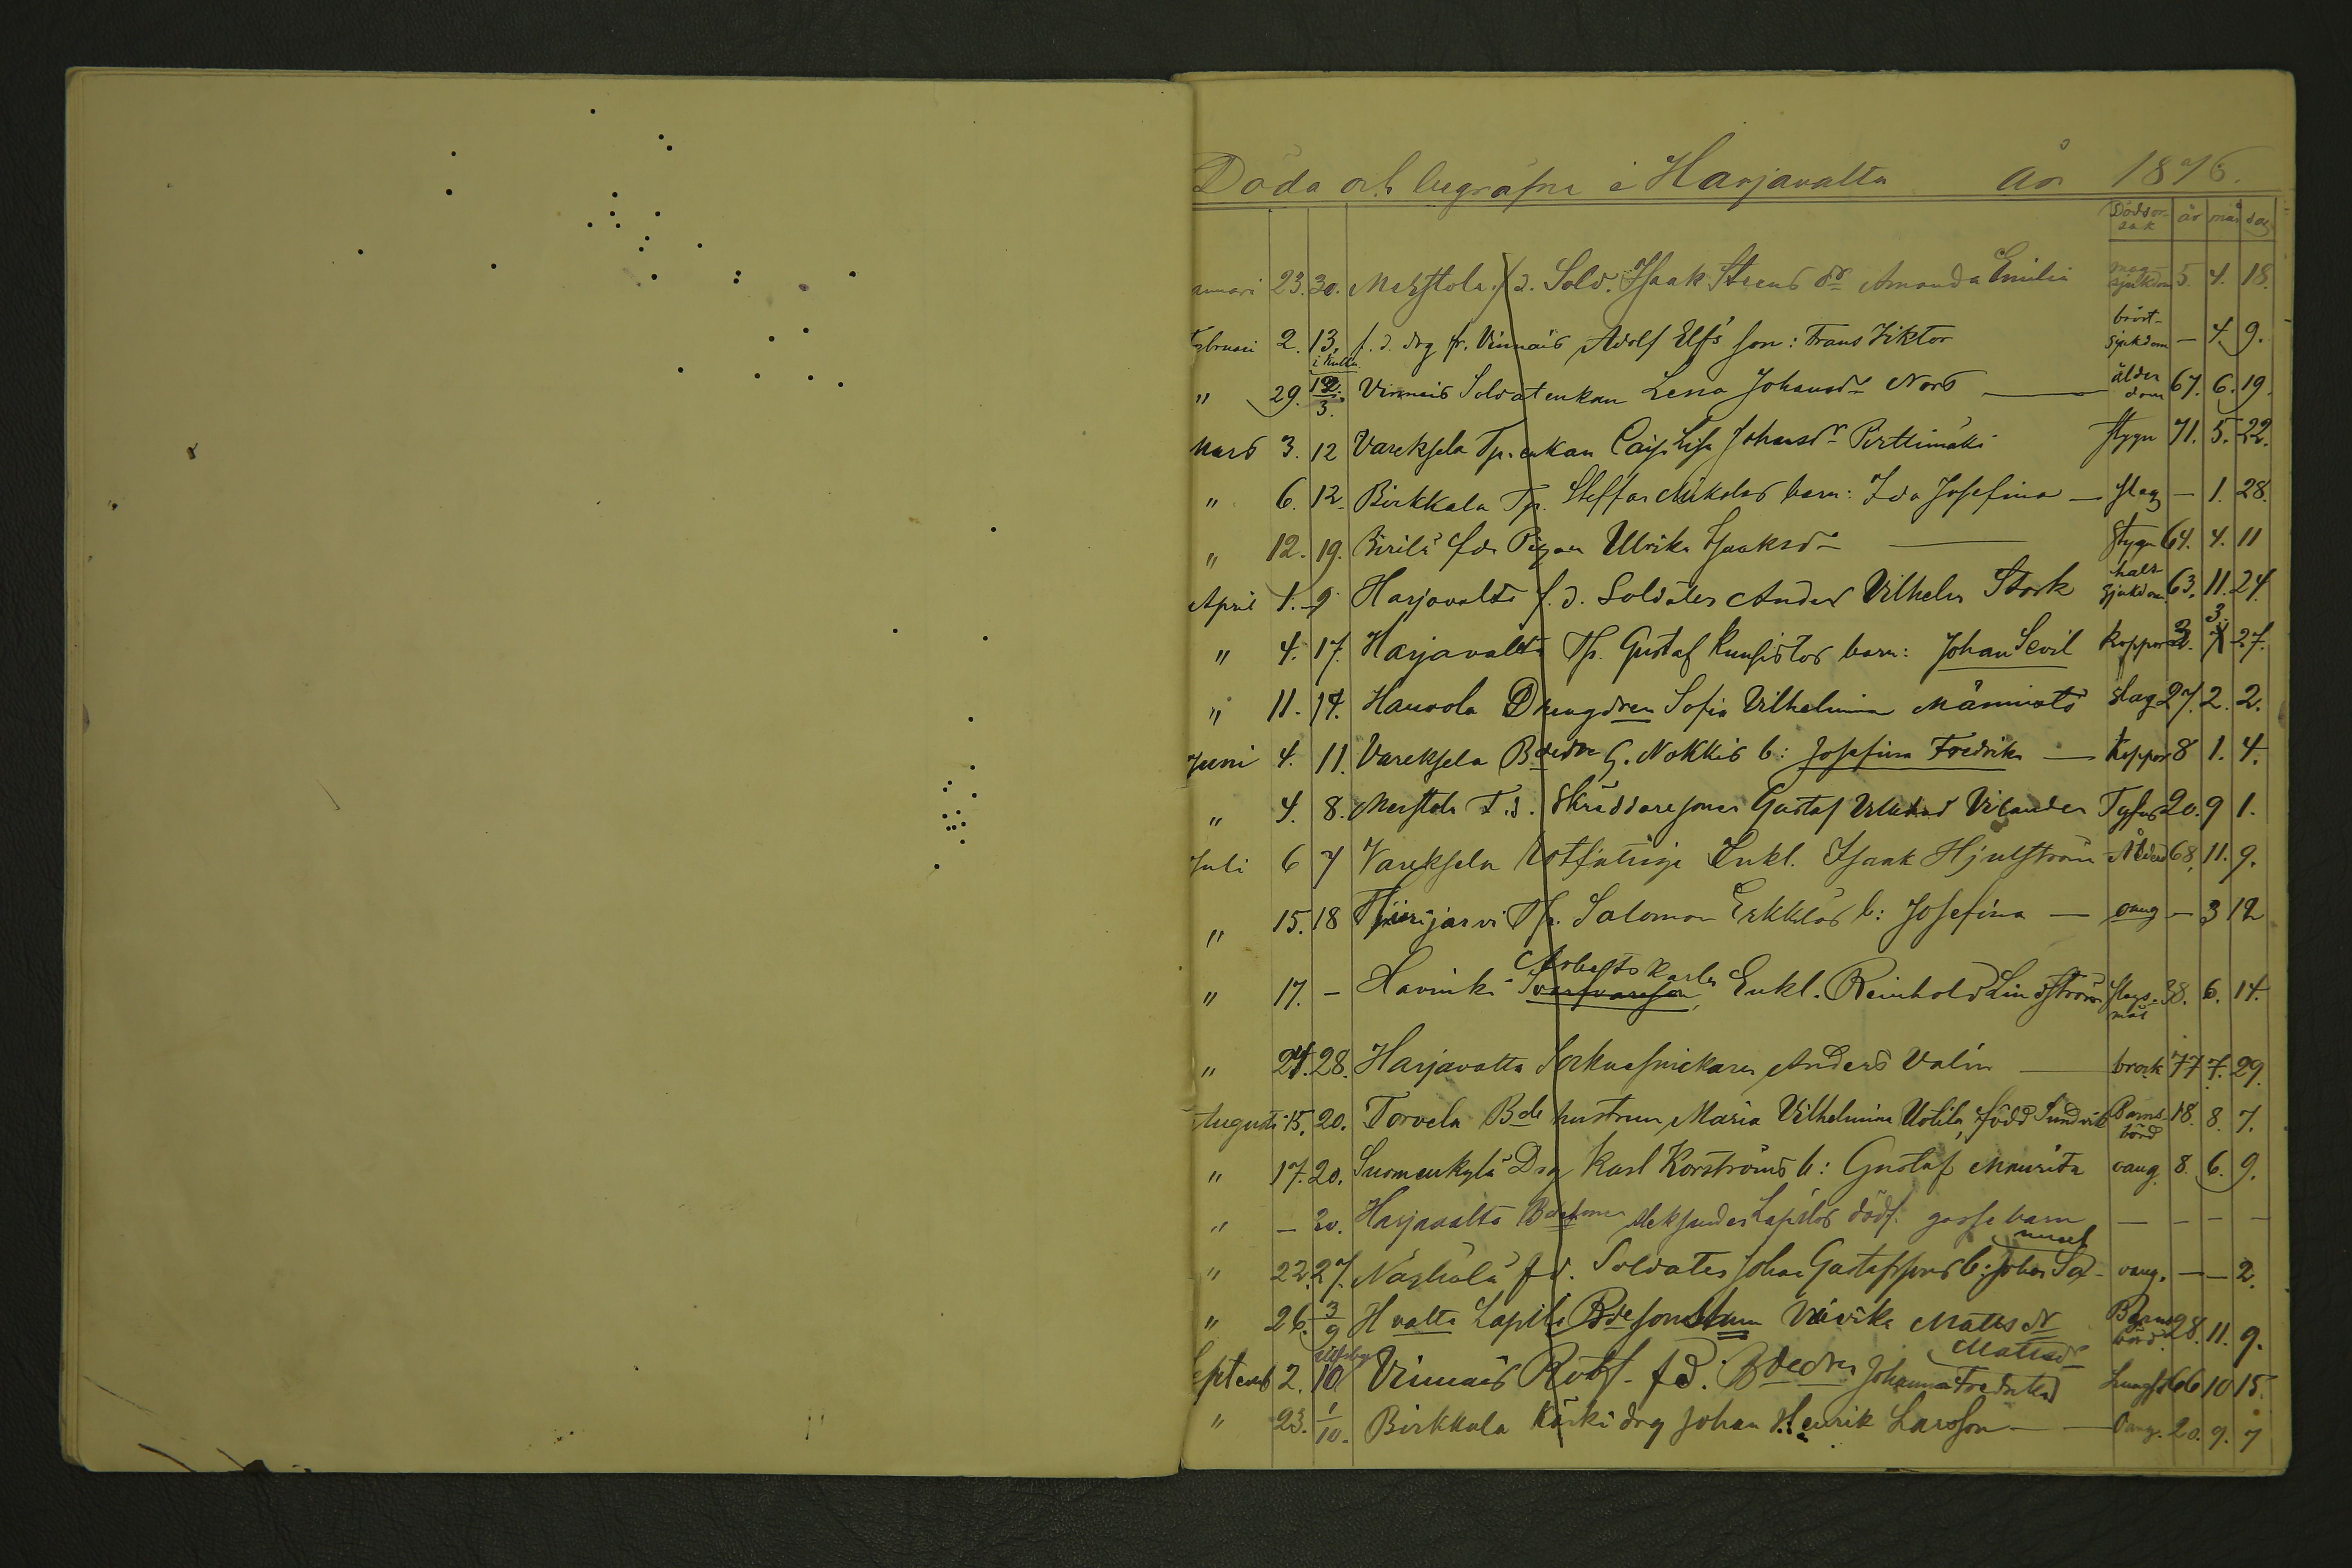 Döda och begräfne i Harjavalta År 1876.
Dödsorsak år må dag
anuari 23. 30. Merstola f.d. Sold. Isaak Steens dr Amanda Emilia mag-sjukdom 5. 4. 18.
Februari 2. 13. f.d. drg fr. Vinnais Adolf Elfs son: Frans Viktor bröst-sjukdom — 4. 9.
i Kulla
" 29. 12/3. Vinnais Soldatenkan Lena Johansdr Nord — ålderdom 67. 6. 19.
Mars 3. 12 Vareksela Tp. enkan Cajsa Lisa Johansdr Perttimäki stygn 71. 5. 22.
" 6. 12. Birkkala Tp. Steffan Mikolas barn: Ida Josefina — slag — 1. 28.
" 12. 19. Birilä f.d. Pigan Ulrika Isaksdr — stygn 64. 4. 11
April 1. 9. Harjavalta f.d. Soldaten Anders Vilhelm Stork halssjukdom 63. 11. 24.
" 4. 17. Harjavalta Tp. Gustaf Kunsistos barn: Johan Sevil koppor 3. 27.
" 11. 17. Haurola Drengdren Sofia Vilhelmina Männistö slag 27. 2. 2.
Juni 4. 11. Vareksela Bdedtr G. Nokkis b: Josefina Fredrika — koppor 8 1. 4.
" 4. 8. Merstola F.d. Skräddaresonen Gustaf Vilander Tyfus 20. 9 1.
Juli 6 7 Vareksela Rotfattige Enkl. Isaak Hjulström Ålderd 68. 11. 9.
" 15. 18 Hiirijärvi Tp. Salomon Erkkilas b: Josefina — oang — 3 12
Arbetskarln
" 17. — Havinki Enkl. Reinhold Lindström slagsmål 38. 6. 14.
" 24. 28. Harjavalta Socknesnickaren Anders Valin — brock 77 7. 29.
Augusti 15. 20. Torvela Bde hustrun Maria Vilhelmina Uotila, född Sundvik Barnsbörd 18. 8. 7.
" 17. 20. Suomenkylä Drg Karl Korströms b: Gustaf Mauritz oang. 8. 6. 9.
" — 20. Harjavalta Bdesonen Aleksander Lapilas dödf. gossebarn — — — —
" 22. 27. Näyhälä f.d. Soldaten Johan Gustafssons b: Johan Sa-muel oang. — — 2.
" 26. 3/9 Hvalta Lapila Bdesonhstrun Vivika Matts dr Barnsbörd 28. 11. 9.
Septemb 2. 10 Vinnais Rotf. f.d. Bdedtr Johanna Fredrika Matsdr Lungsot 66 10 15.
" 23. 1/10. Birkkala Kärki drg Johan Henrik Larsson — Oang. 20. 9. 7